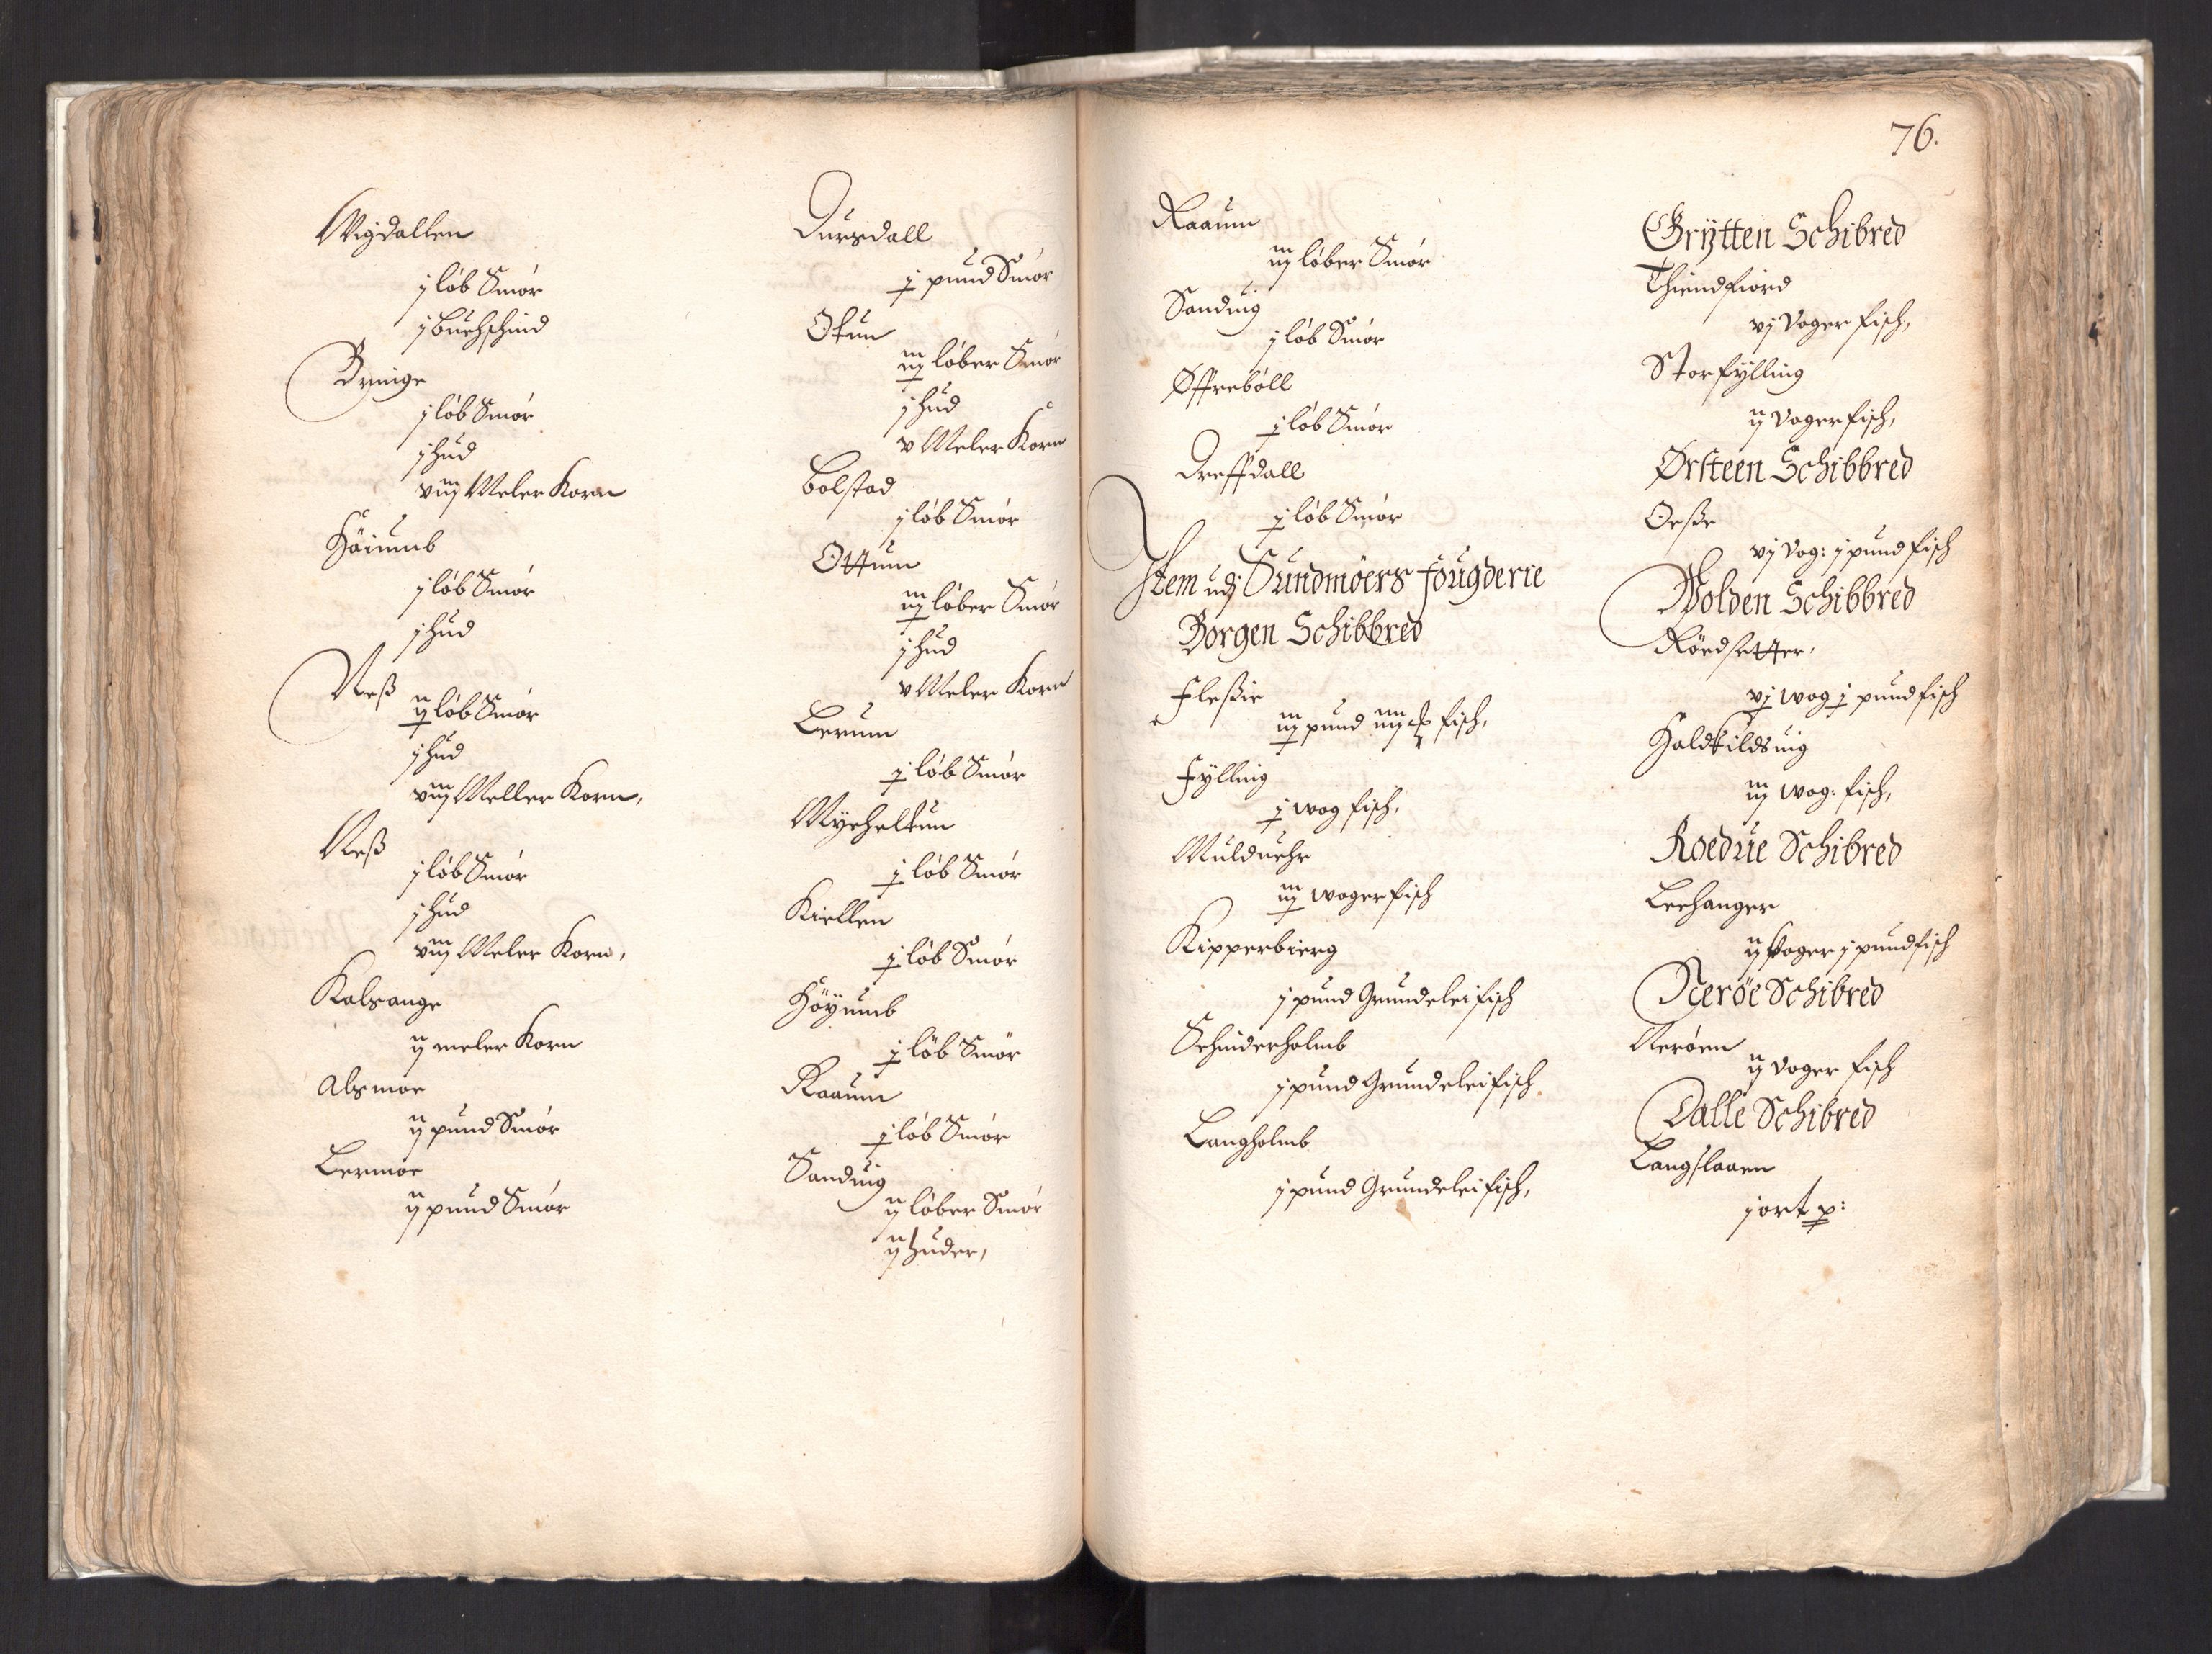 Vigdallen
j løb Smør
j Buckschind
Bringe
j løb Smør
j hud
viij Meler Korn
Høiumb
j løb Smør
j hud
Neß
ij løb Smør
j hud
viij Meller Korn,
Neß
j løb Smør
j hud
viij Meler Korn,
Kalsange
ij meler Korn
Alsmoe
ij pund Smør
Lermoe
ij pund Smør
Dursdall
j pund Smør
Otun
iij løber Smør
j hud
v Meler Korn
Bolstad
j løb Smør
Ottum
iij løber Smør
j hud
v Meler Korn
Lerum
j løb Smør
Mycheltun
j løb Smør
Kiellen
j løb Smør
Høyumb
j løb Smør
Raaum
j løb Smør
Sanduig
ij løber Smør
ij huder,
76.
Raaum
iij løber Smør
Sanduig
j løb Smør
Øffrebøll
j løb Smør
Dreffdall
j løb Smør
Item udj Sundmøers fougderie
Borgen Schibbred
Fleßie
iij pund iiij fisch,
Fylling
j wog fisch,
Mulduehr
iij woger fisch
Kipperbierg
j pund Grundelei fisch
Schinderholmb
j pund Grundelei fisch
Langholmb
j pund Grundelei fisch,
Grytten Schibred
Thiendfiord
vj Voger fisch,
Storfylling
ij Voger fisch,
Ørsteen Schibbred
Oeße
vj Vog: j pund fisch
Wolden Schibbred
Rørdsetter,
vj wog j pund fisch
Haldkildsuig
iij wog: fisch,
Roedue Schibred
Leehanger
ij Voger j pund fisch
Nerøe Schibred
Nerøen
ij Voger fisch
Dalle Schibred
Langslaaen
j ort p: